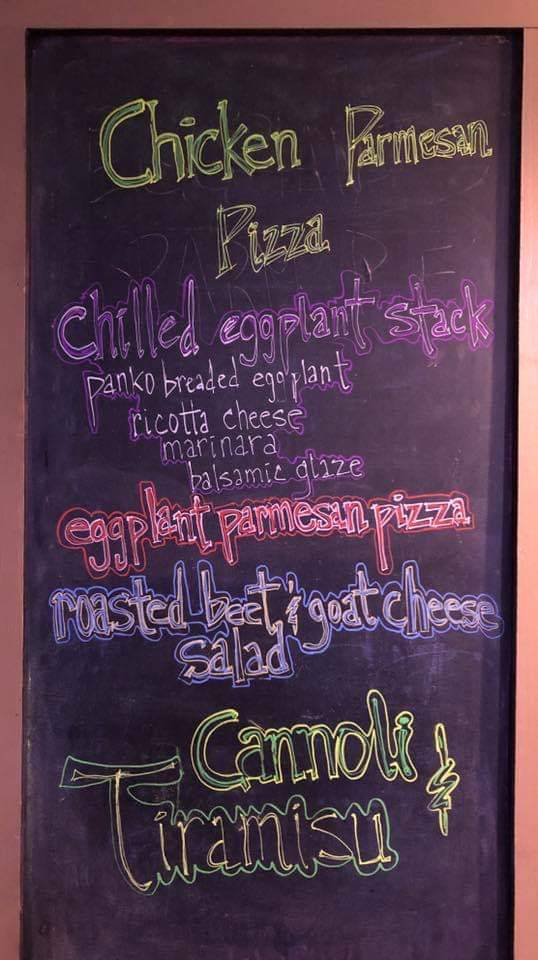 Chicken Parmesan
Pizza
Chilled eggplant stack
panko breaded eggplant
ricotta cheese
marinara
balsamic glaze
eggplant parmesan pizza
roasted beet & goat cheese
salad
Cannoli &
Tiramisu